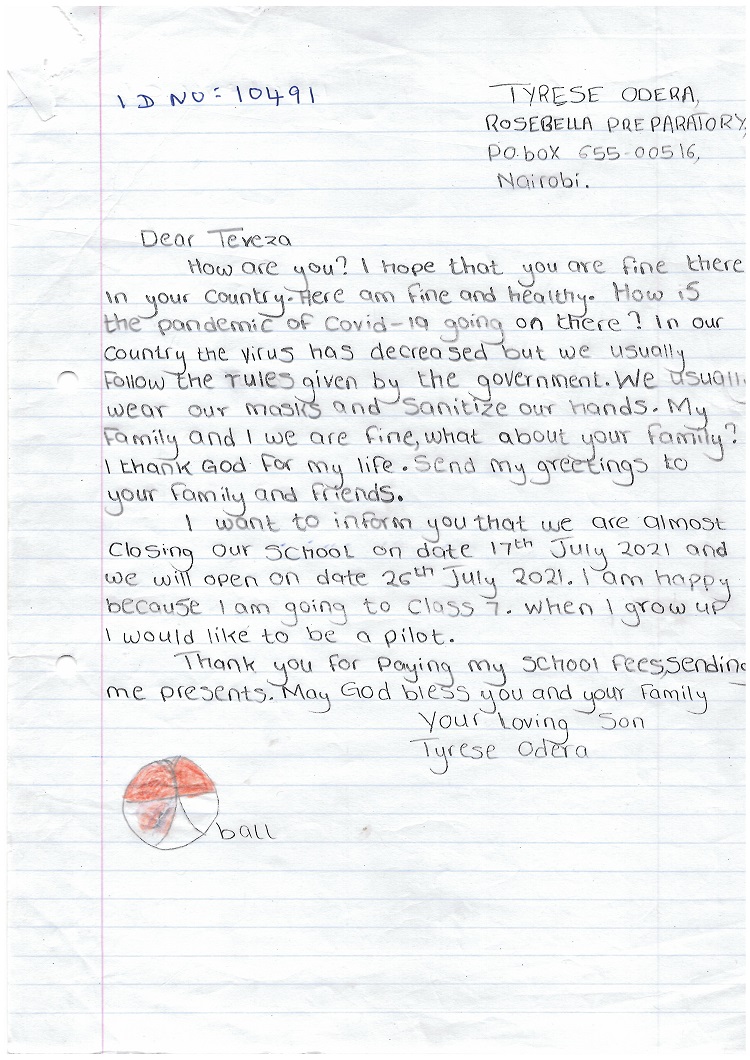 ID NO: 10491
TYRESE ODERA,
ROSEBELLA PREPARATORY,
P.O.box 655-00516,
Nairobi.
Dear Tereza
How are you? I hope that you are fine there
in your country. Here am fine and healthy. How is
the pandemic of Covid-19 going on there? In our
country the virus has decreased but we usually
Follow the rules given by the government. We usuall
wear our masks and Sanitize our hands. My
Family and I we are fine, what about your family?
I thank God for my life. Send my greetings to
your family and friends.
I want to inform you that we are almost
Closing our school on date 17th July 2021 and
we will open on date 26th July 2021. I am happy
because I am going to Class 7. When I grow up
I would like to be a pilot.
Thank you for paying my school fees,sending
me presents. May God bless you and your Family
Your Loving Son
Tyrese Odera
ball